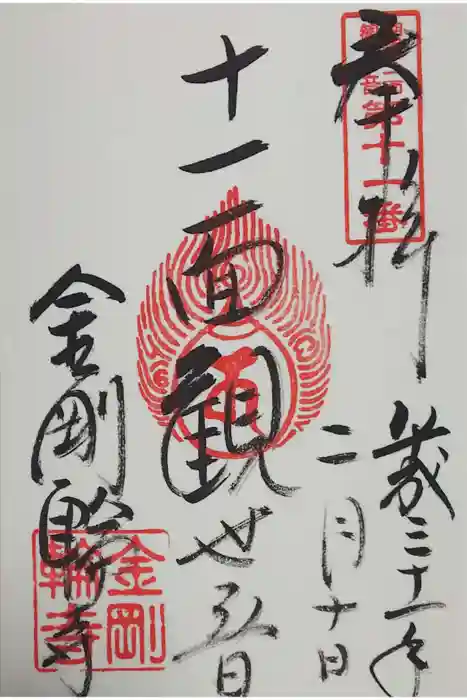 奉拝
第十一番
平成三十一年
二月十日
十一面観世音
金剛輪寺
金剛輪寺